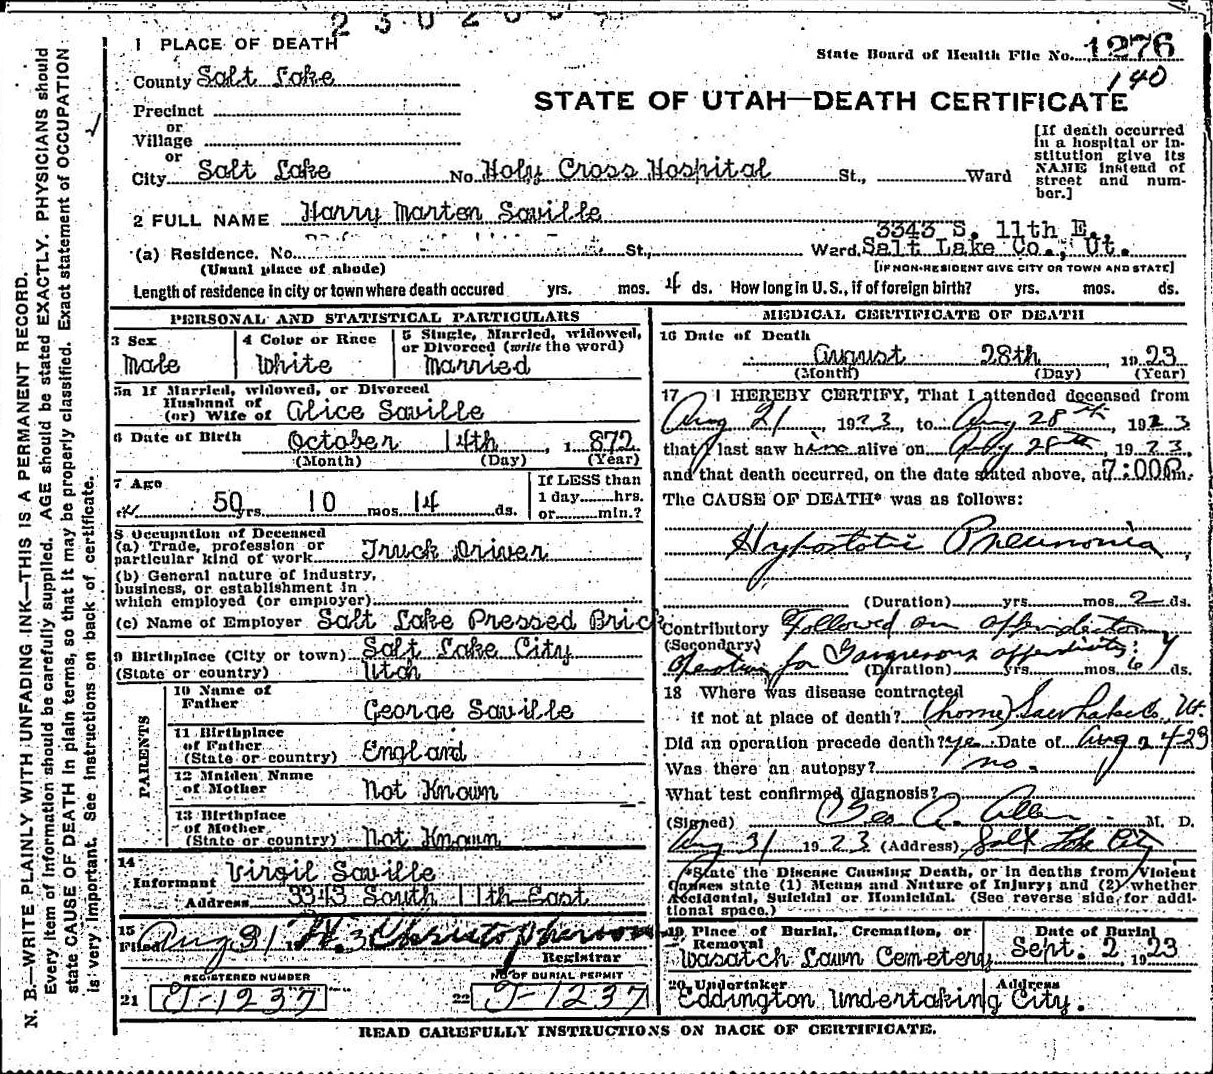 1 PLACE OF DEATH
State Board of Health File No. 1276
140
County Salt Lake
STATE OF UTAH—DEATH CERTIFICATE
Precinct
or
Village
or
City Salt Lake No. Holy Cross Hospital St., Ward
[If death occurred
in a hospital or in-
stitution give its
NAME instead of
street and num-
ber.]
2 FULL NAME Harry Marten Saville
3343 S. 11th E.,
(a) Residence. No. St., Ward. Salt Lake Co., Ut.
(Usual place of abode) [IF NON-RESIDENT GIVE CITY OR TOWN AND STATE]
Length of residence in city or town where death occured yrs. mos. 4 ds. How long in U.S., if of foreign birth? yrs. mos. ds.
PERSONAL AND STATISTICAL PARTICULARS
3 Sex
Male
4 Color or Race
White
5 Single, Married, widowed,
or Divorced (write the word)
Married
5a If Married, widowed, or Divorced
Husband of
(or) Wife of Alice Saville
6 Date of Birth October 14th, 1 872
(Month) (Day) (Year)
7 Age
50 yrs. 10 mos. 14 ds.
If LESS than
1 day hrs.
or min.?
8 Occupation of Deceased
(a) Trade, profession or
particular kind of work Truck Driver
(b) General nature of industry,
business, or establishment in
which employed (or employer)
(c) Name of Employer Salt Lake Pressed Brick
9 Birthplace (City or town) Salt Lake City
(State or country) Utah
PARENTS
10 Name of
Father George Saville
11 Birthplace
of Father
(State or country) England
12 Maiden Name
of Mother Not Known
13 Birthplace
of Mother
(State or country) Not Known
14
Informant Virgil Saville
Address 3343 South 11th East
15
Filed Aug 31 192 3 Christopherson
Registrar
REGISTERED NUMBER
21 J-1237
NO OF BURIAL PERMIT
22 J-1237
MEDICAL CERTIFICATE OF DEATH
16 Date of Death
August 28th 19 23
(Month) (Day) (Year)
17 I HEREBY CERTIFY, That I attended deceased from
Aug 21, 1923, to Aug 28th, 1923
that I last saw him alive on Aug 28th, 1923,
and that death occurred, on the date stated above, at 7:00P m.
The CAUSE OF DEATH* was as follows:
Hypostatic Pneumonia,
(Duration) yrs. mos. 2 ds.
Contributory Followed an appendectomy
(Secondary)
operation for Gangrenous appendicitis
(Duration) yrs. mos. ds.
18 Where was disease contracted
if not at place of death? (home) Salt Lake Co., Ut.
Did an operation precede death? yes Date of Aug 24 23
Was there an autopsy? no.
What test confirmed diagnosis?
(Signed) Geo A. Allen M. D.
Aug 31 1923 (Address) Salt Lake City
*State the Disease Causing Death, or in deaths from Violent
Causes state (1) Means and Nature of Injury; and (2) whether
Accidental, Suicidal or Homicidal. (See reverse side for addi-
tional space.)
19 Place of Burial, Cremation, or
Removal
Wasatch Lawn Cemetery
Date of Burial
Sept. 2, 1923
20 Undertaker Address
Eddington Undertaking City.
READ CAREFULLY INSTRUCTIONS ON BACK OF CERTIFICATE.
N. B.—WRITE PLAINLY WITH UNFADING INK—THIS IS A PERMANENT RECORD.
Every item of information should be carefully supplied. AGE should be stated EXACTLY. PHYSICIANS should
state CAUSE OF DEATH in plain terms, so that it may be properly classified. Exact statement of OCCUPATION
is very important. See instructions on back of certificate.